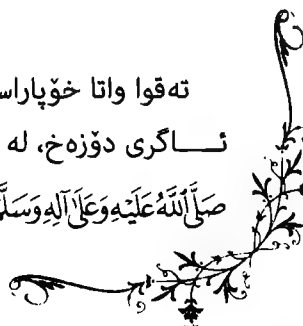 تەقوا واتا خۆپاراس
ئـــــاگری دۆزەخ، لە
صَلَّى اللَّهُ عَلَيْهِ وَعَلَى آلِهِ وَسَلَّ